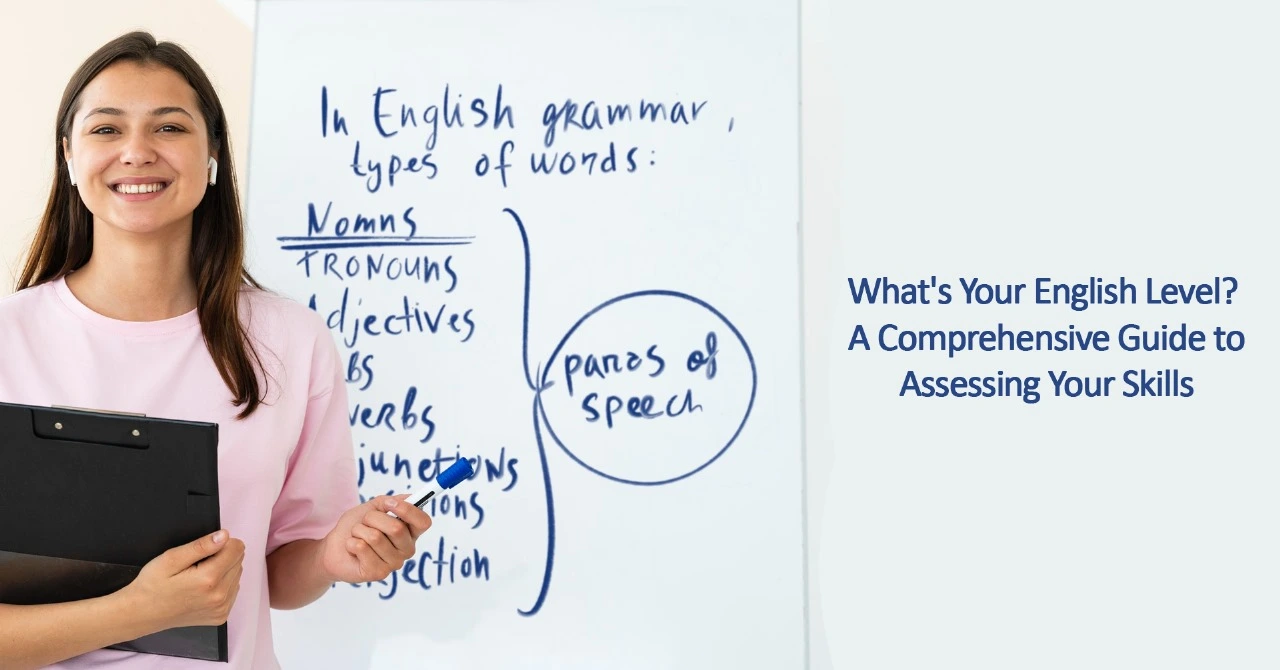 In English grammar,
types of words:
Nomns
TRONOUNS
Adjectives
bs
verbs
junctions
sitions
rejection
parts of
speech
What's Your English Level?
A Comprehensive Guide to
Assessing Your Skills